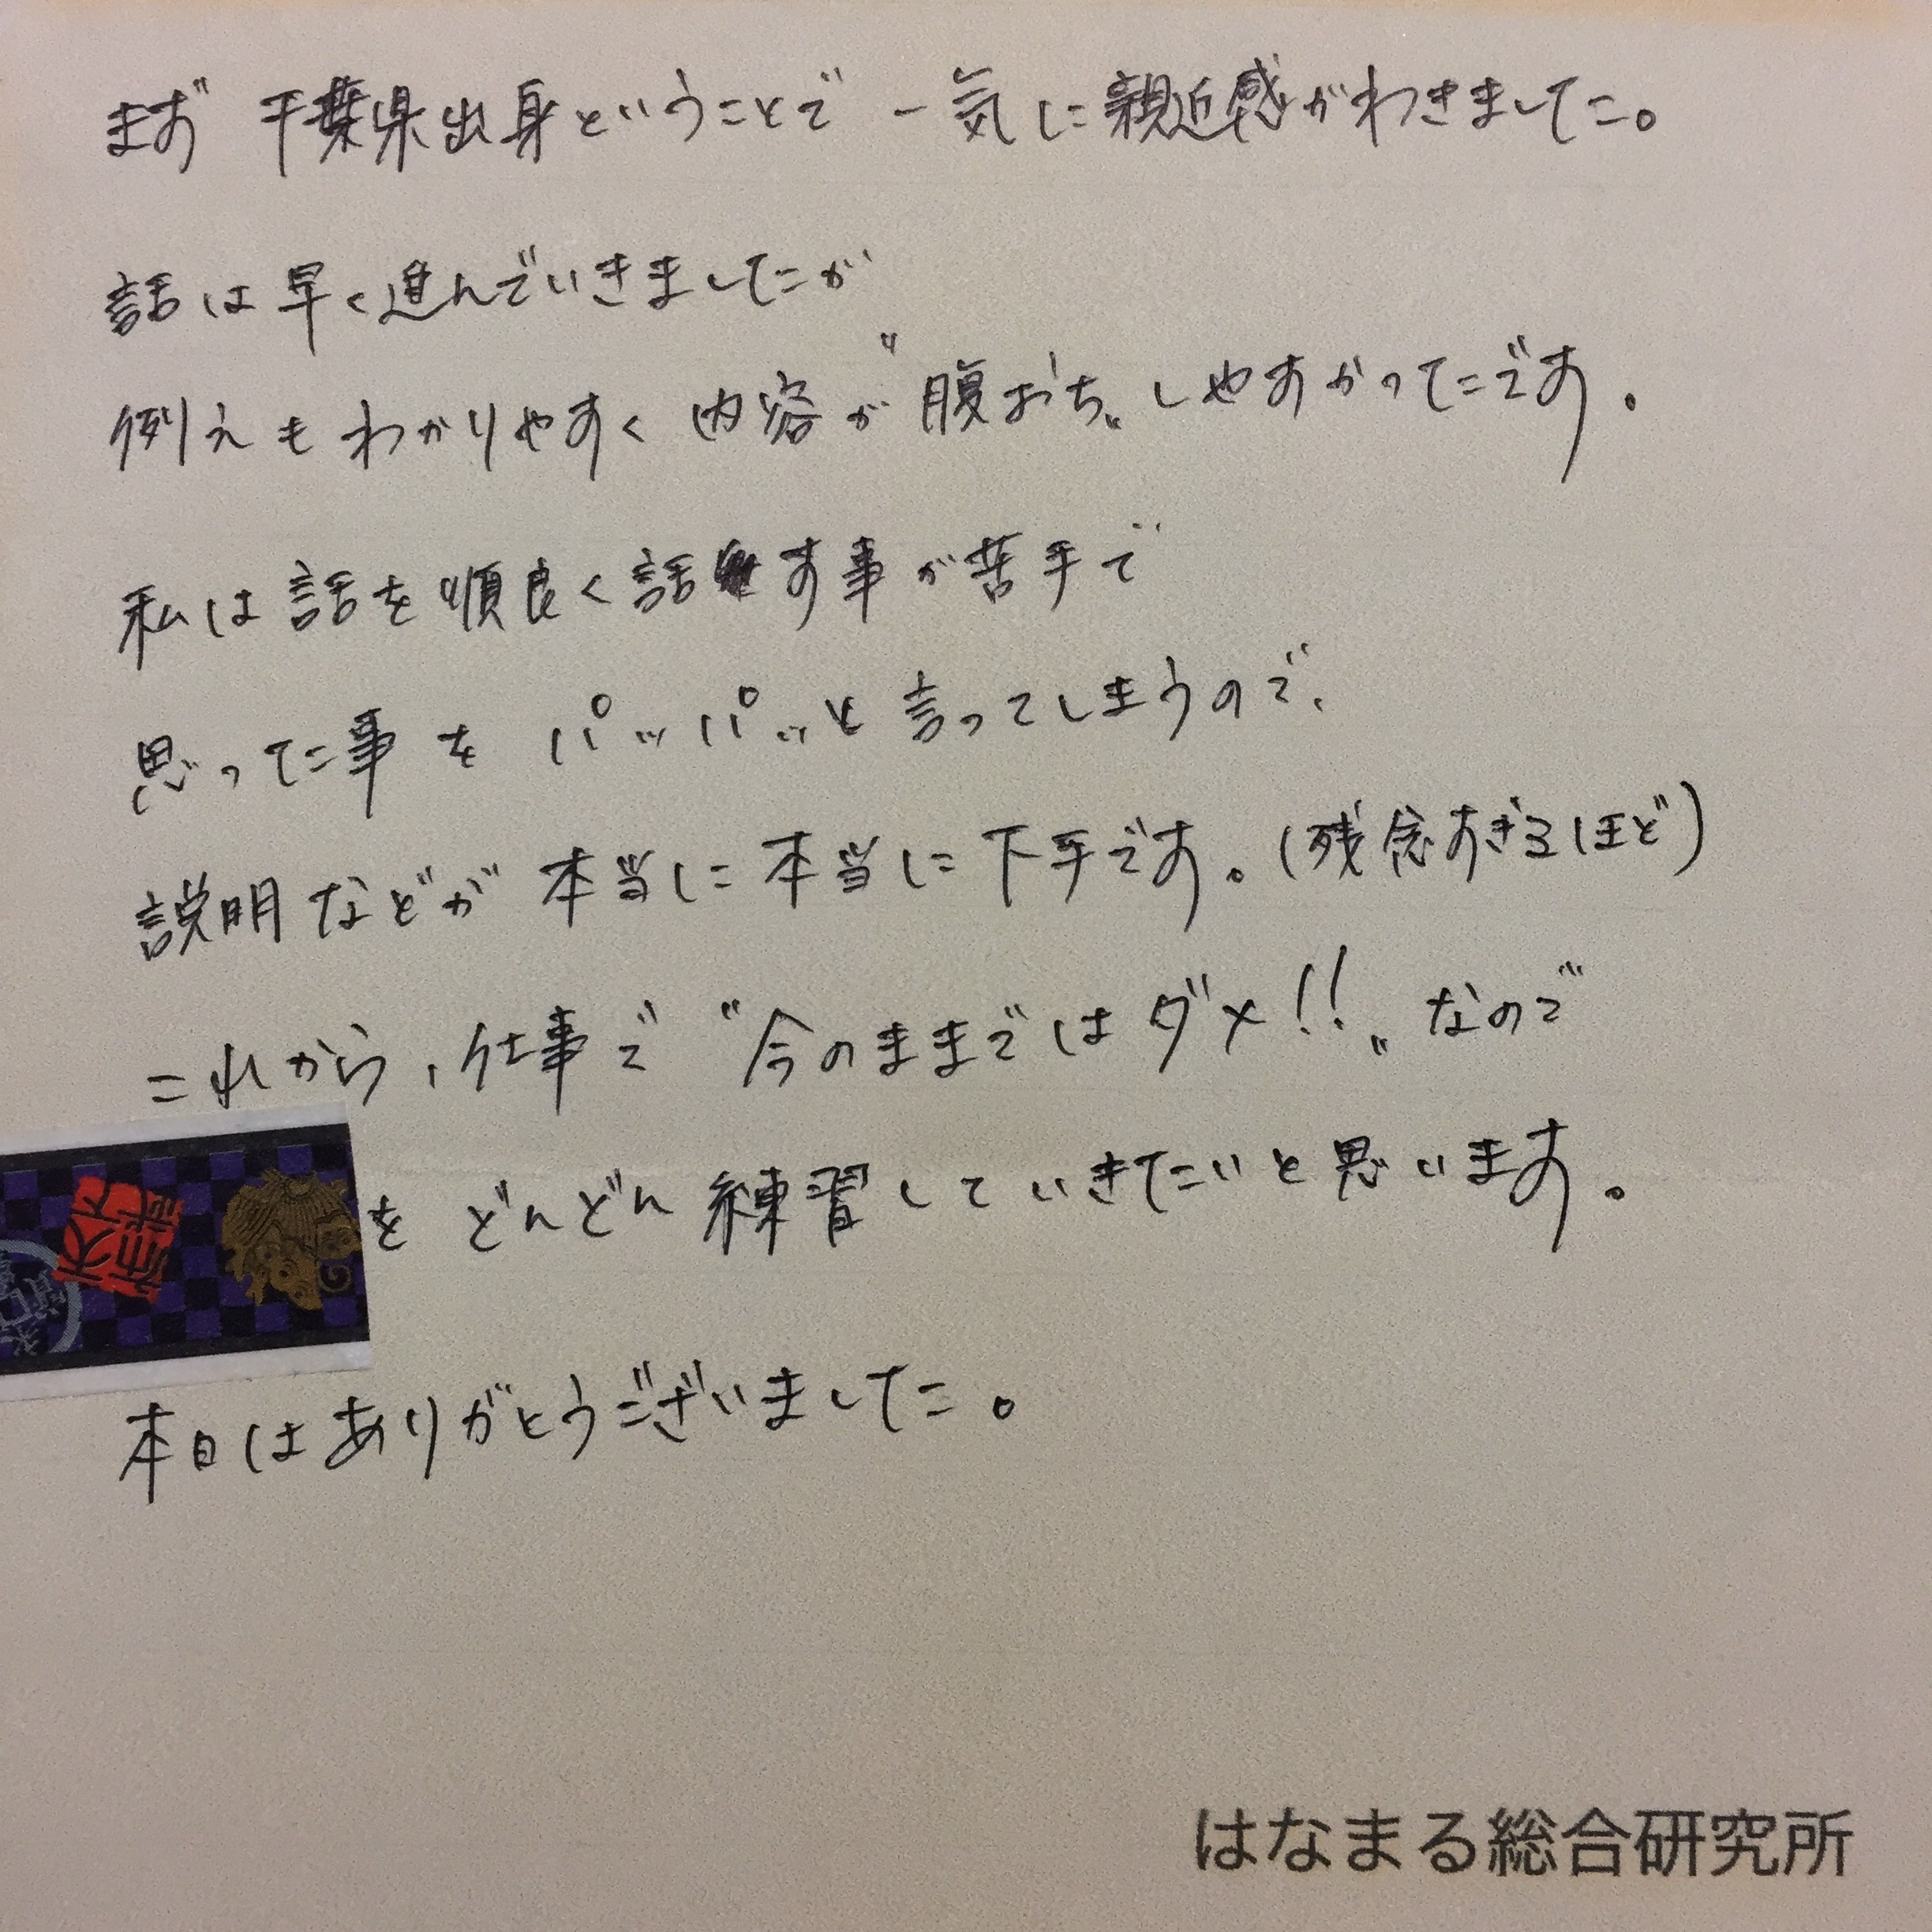 まず 千葉県出身ということで 一気に親近感がわきました。
話は早く進んでいきましたが
例えもわかりやすく 内容が〝腹おち〟しやすかったです。
私は話を順良く話す事が苦手で
思った事を パッパッと言ってしまうので、
説明などが 本当に本当に下手です。(残念すぎるほど)
これから、仕事で〝今のままではダメ!!〟なので
を どんどん練習していきたいと思います。
本日はありがとうございました。
はなまる総合研究所